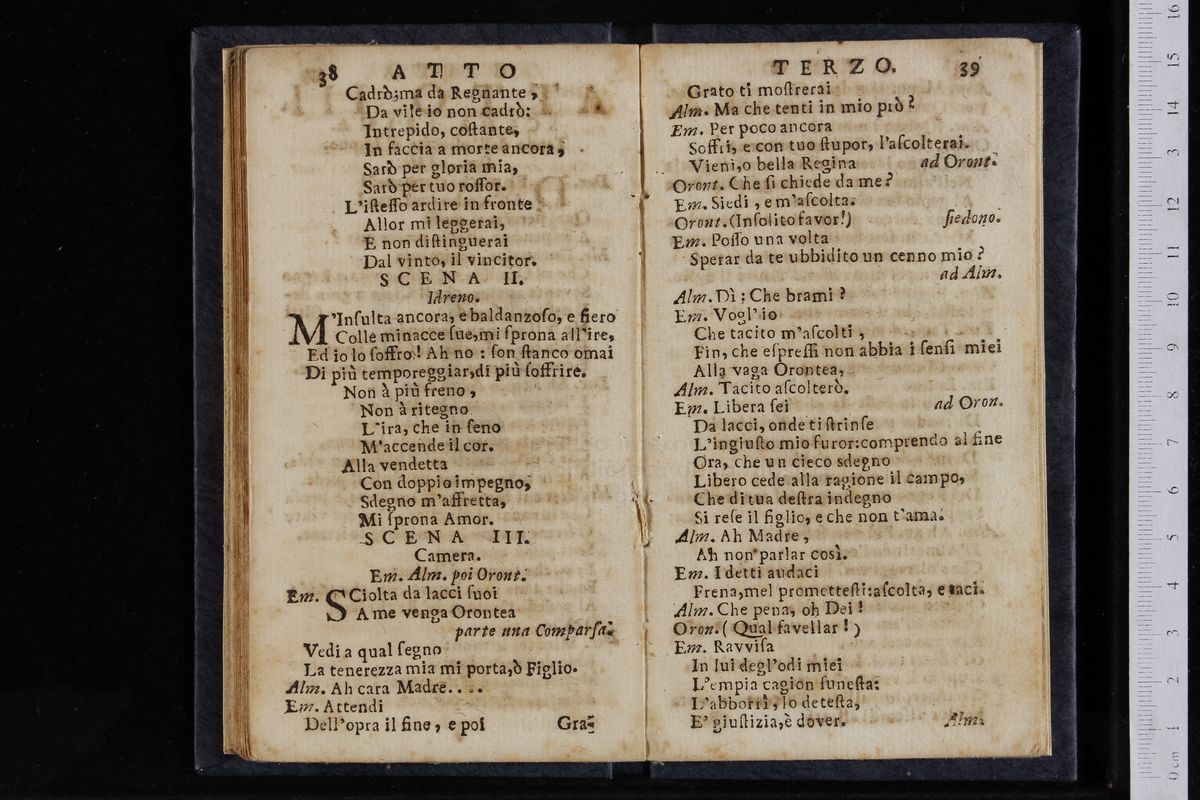 38 ATTO
Cadrò;ma da Regnante,
Da vile io non cadrò:
Intrepido, coſtante,
In faccia a morte ancora,
Sarò per gloria mia,
Sarò per tuo roſſor.
L'iſteſſo ardire in fronte
Allor mi leggerai,
E non diſtinguerai
Dal vinto, il vincitor.
SCENA II.
Idreno.
M'Inſulta ancora, e baldanzoſo, e fiero
Colle minacce ſue,mi ſprona all'ire,
Ed io lo ſoffro! Ah no : ſon ſtanco omai
Di più temporeggiar,di più ſoffrire.
Non à più freno,
Non à ritegno
L'ira, che in ſeno
M'accende il cor.
Alla vendetta
Con doppio impegno,
Sdegno m'affretta,
Mi ſprona Amor.
SCENA III.
Camera.
Em. Alm. poi Oront.
Em. SCiolta da lacci ſuoi
A me venga Orontea
parte una Comparſa.
Vedi a qual ſegno
La tenerezza mia mi porta,ò Figlio.
Alm. Ah cara Madre....
Em. Attendi
Dell'opra il fine, e poi
Gra-
TERZO. 39
Grato ti moſtrerai
Alm. Ma che tenti in mio prò?
Em. Per poco ancora
Soffri, e con tuo ſtupor, l'aſcolterai.
Vieni,o bella Regina ad Oront.
Oront. Che ſi chiede da me?
Em. Siedi, e m'aſcolta.
Oront.(Inſolito favor!) ſiedono.
Em. Poſſo una volta
Sperar da te ubbidito un cenno mio?
ad Alm.
Alm. Dì : Che brami?
Em. Vogl'io
Che tacito m'aſcolti,
Fin, che eſpreſſi non abbia i ſenſi miei
Alla vaga Orontea,
Alm. Tacito aſcolterò.
Em. Libera ſei ad Oron.
Da lacci, onde ti ſtrinſe
L'ingiuſto mio furor:comprendo al fine
Ora, che un cieco sdegno
Libero cede alla ragione il campo,
Che di tua deſtra indegno
Si reſe il figlio, e che non t'ama.
Alm. Ah Madre,
Ah non parlar così.
Em. I detti audaci
Frena,mel prometteſti:aſcolta, e taci.
Alm. Che pena, oh Dei!
Oron.( Qual favellar!)
Em. Ravviſa
In lui degl'odi miei
L'empia cagion funeſta:
L'abborrì, lo deteſta,
E' giuſtizia,è dover. Alm.